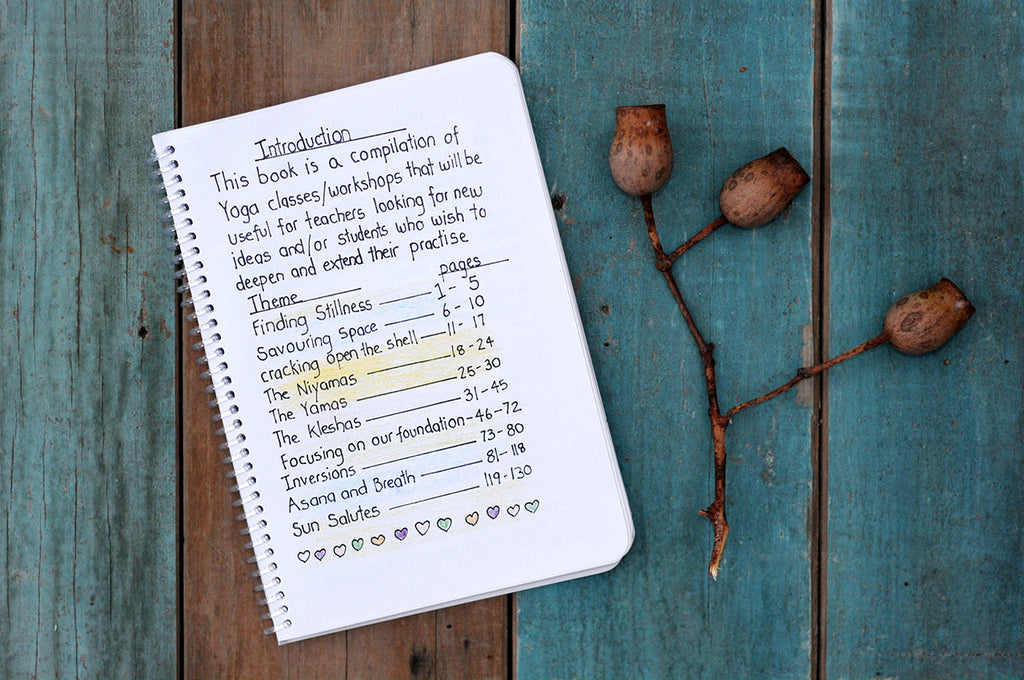 Introduction
This book is a compilation of
Yoga classes/workshops that will be
useful for teachers looking for new
ideas and/or students who wish to
deepen and extend their practise
Theme pages
Finding Stillness 1 - 5
Savouring Space 6 - 10
cracking open the shell 11 - 17
The Niyamas 18-24
The Yamas 25-30
The Kleshas 31-45
Focusing on our foundation-46-72
Inversions 73-80
Asana and Breath 81-118
Sun Salutes 119-130